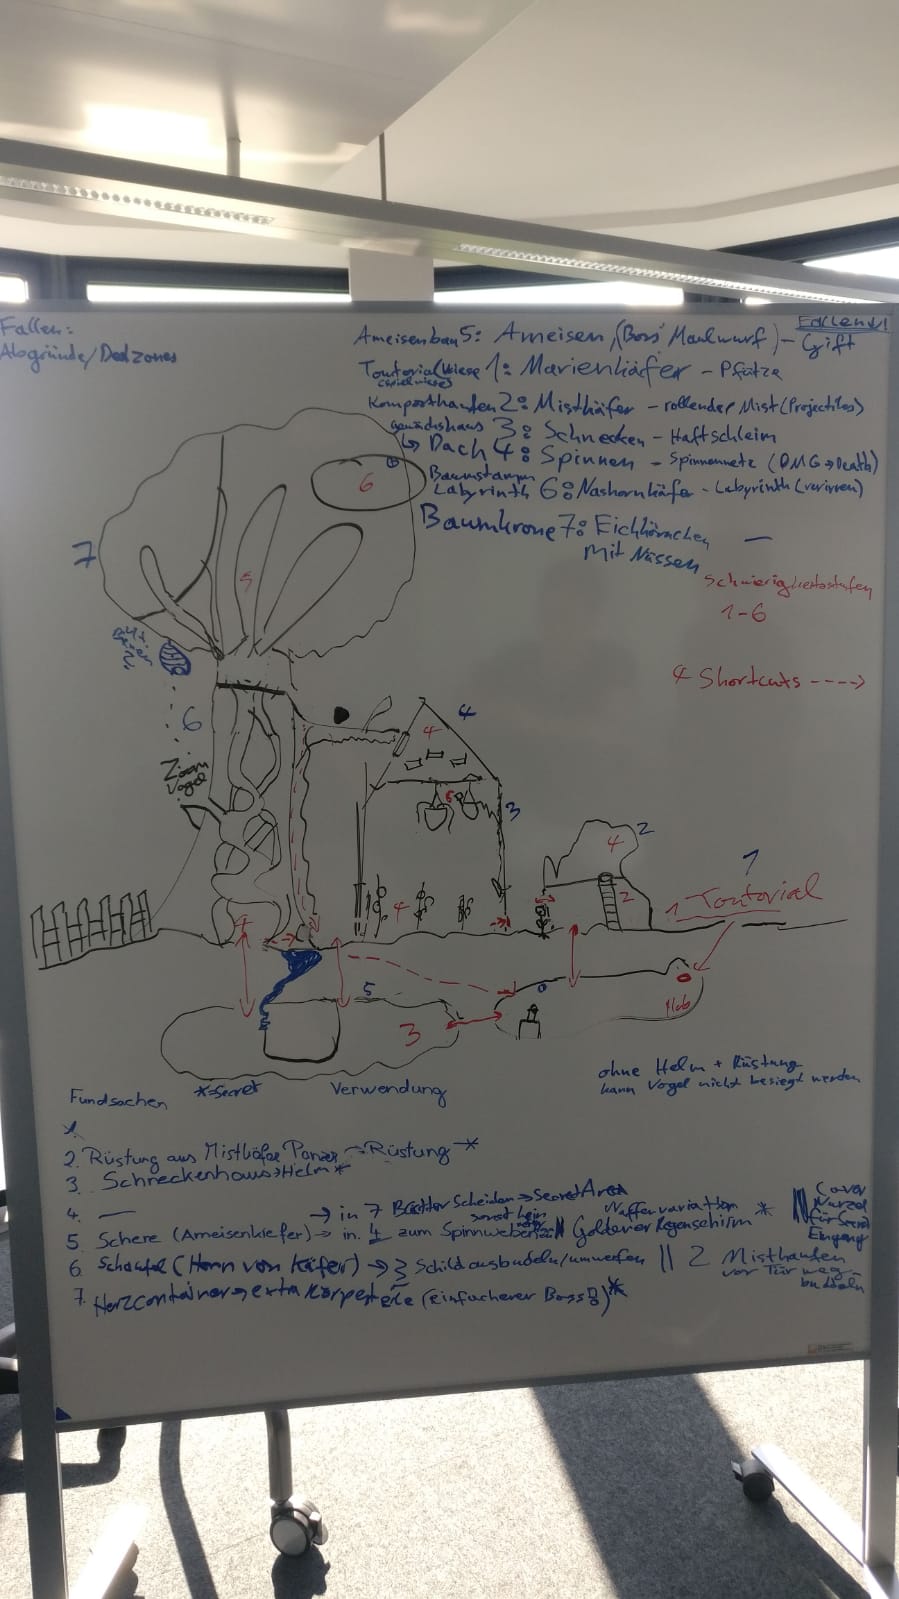 Fallen:
Abgründe/Dedzones
Fallen ↓
Ameisenbau 5: Ameisen, (Boss Maulwurf) - Gift
Toutorial (Wiese 1: Marienkäfer - Pfütze
(Spielwiese)
Komposthaufen 2: Mistkäfer - rollender Mist (Projectiles)
gewächshaus 3: Schnecken - Haftschleim
↳ Dach 4: Spinnen - Spinnennetz (DMG → Death)
Baumstamm
Labyrinth 6: Nashornkäfer - Labyrinth (verirren)
Baumkrone 7: Eichhörnchen
Mit Nüssen
Schwierigkeitsstufen
1-6
4 Shortcuts ---->
6
7
5
6
Zoom
Vogel
4
4
6
3
4
2
4
2
1
1 Toutorial
4
5
3
Hub
ohne Helm + Rüstung
kann Vogel nicht besiegt werden
Fundsachen
*=Secret
Verwendung
1.
2. Rüstung aus Mistkäfer Panzer → Rüstung *
3. Schneckenhaus → Helm *
4. — → in 7 Blätter Scheiden → Secret Area
5. Schere (Ameisenkiefer) → in 4 zum Spinnweben || Goldener Regenschirm *
Waffenvariation
6. Schaufel (Horn von Käfer) → 3 Schild ausbuddeln/umwerfen || 2 Misthaufen
vor Tür weg-
buddeln
Cover
Wurzel
für Secret
Eingang
7. Herzcontainer → extra Körperteile (einfacherer Boss) *